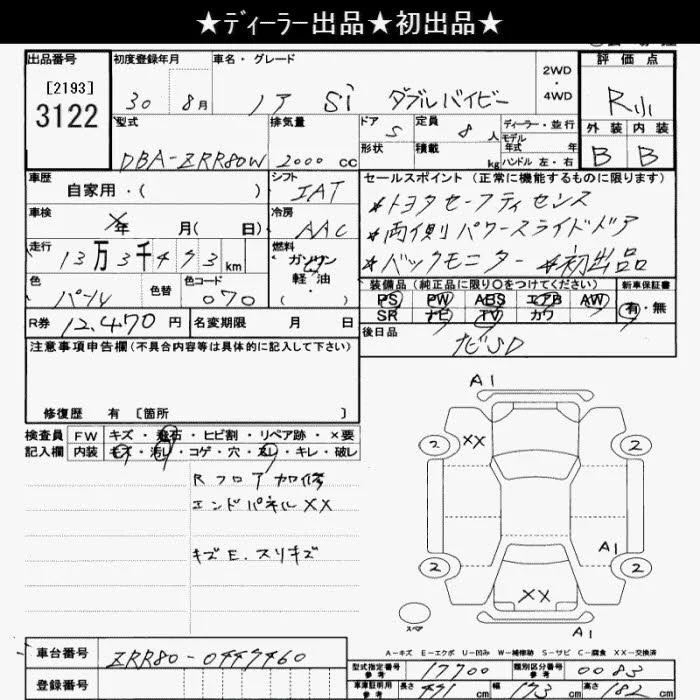 ★ディーラー出品★初出品★
出品番号 初度登録年月 車名・グレード 2WD・4WD 評価点
[2193]
3122
30 8月 ノア Si ダブルバイビー R小
型式 排気量 ドア 定員 ディーラー・並行 外装 内装
DBA-ZRR80W 2000 cc 5 8人 モデル年式 年 B B
形状 積載 kg ハンドル 左・右
車歴 自家用・( ) シフト IAT セールスポイント (正常に機能するものに限ります)
*トヨタセーフティセンス
車検 年 月( 日) 冷房 AAC *両側パワースライドドア
走行 13万3千493km 燃料 ガソリン 軽油 ・( ) *バックモニター *初出品
色 パール 色替 色コード 070 装備品 (純正品に限り○をつけてください) 新車保証書
PS PW ABS エアB AW 有・無
SR ナビ TV カワ
R券 12,470円 名変期限 月 日 後日品
ナビSD
注意事項申告欄(不具合内容等は具体的に記入して下さい)
修復歴 有 [箇所 ]
検査員 FW キズ・飛石・ヒビ割・リペア跡・×要
記入欄 内装 キズ・汚レ・コゲ・穴・スレ・キレ・破レ
Rフロア加修
エンドパネルXX
キズE.スリキズ
A1
2 XX 2
A1
2 2
XX
スペア
A1
A-キズ E-エクボ U-凹み W-補修跡 S-サビ C-腐食 XX-交換済
車台番号 ZRR80-0447460
登録番号
型式指定番号 参考 17700 類別区分番号 参考 0083
車庫証明用 参考 長さ 471cm 幅 173cm 高さ 182cm